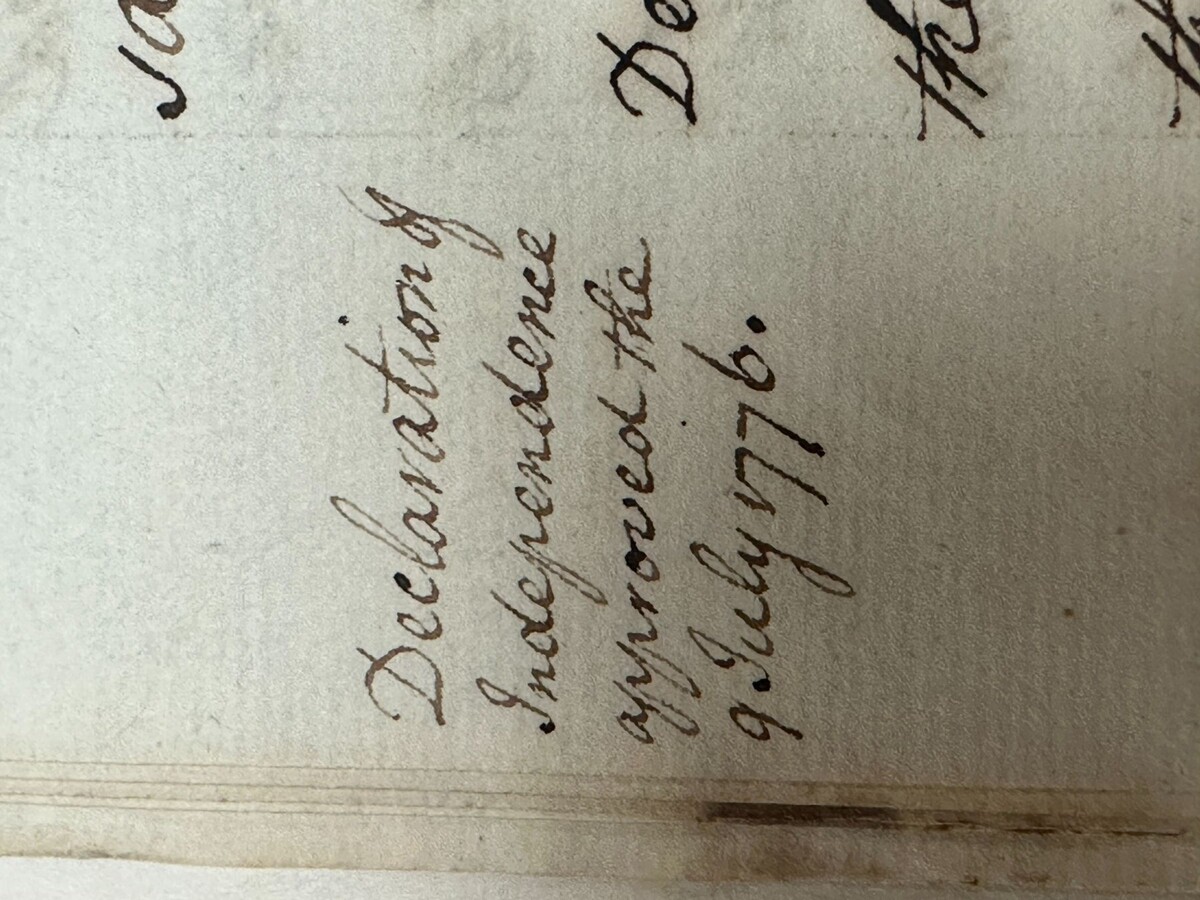 Declaration of
Independence
approved the
9. July 1776.
De
the